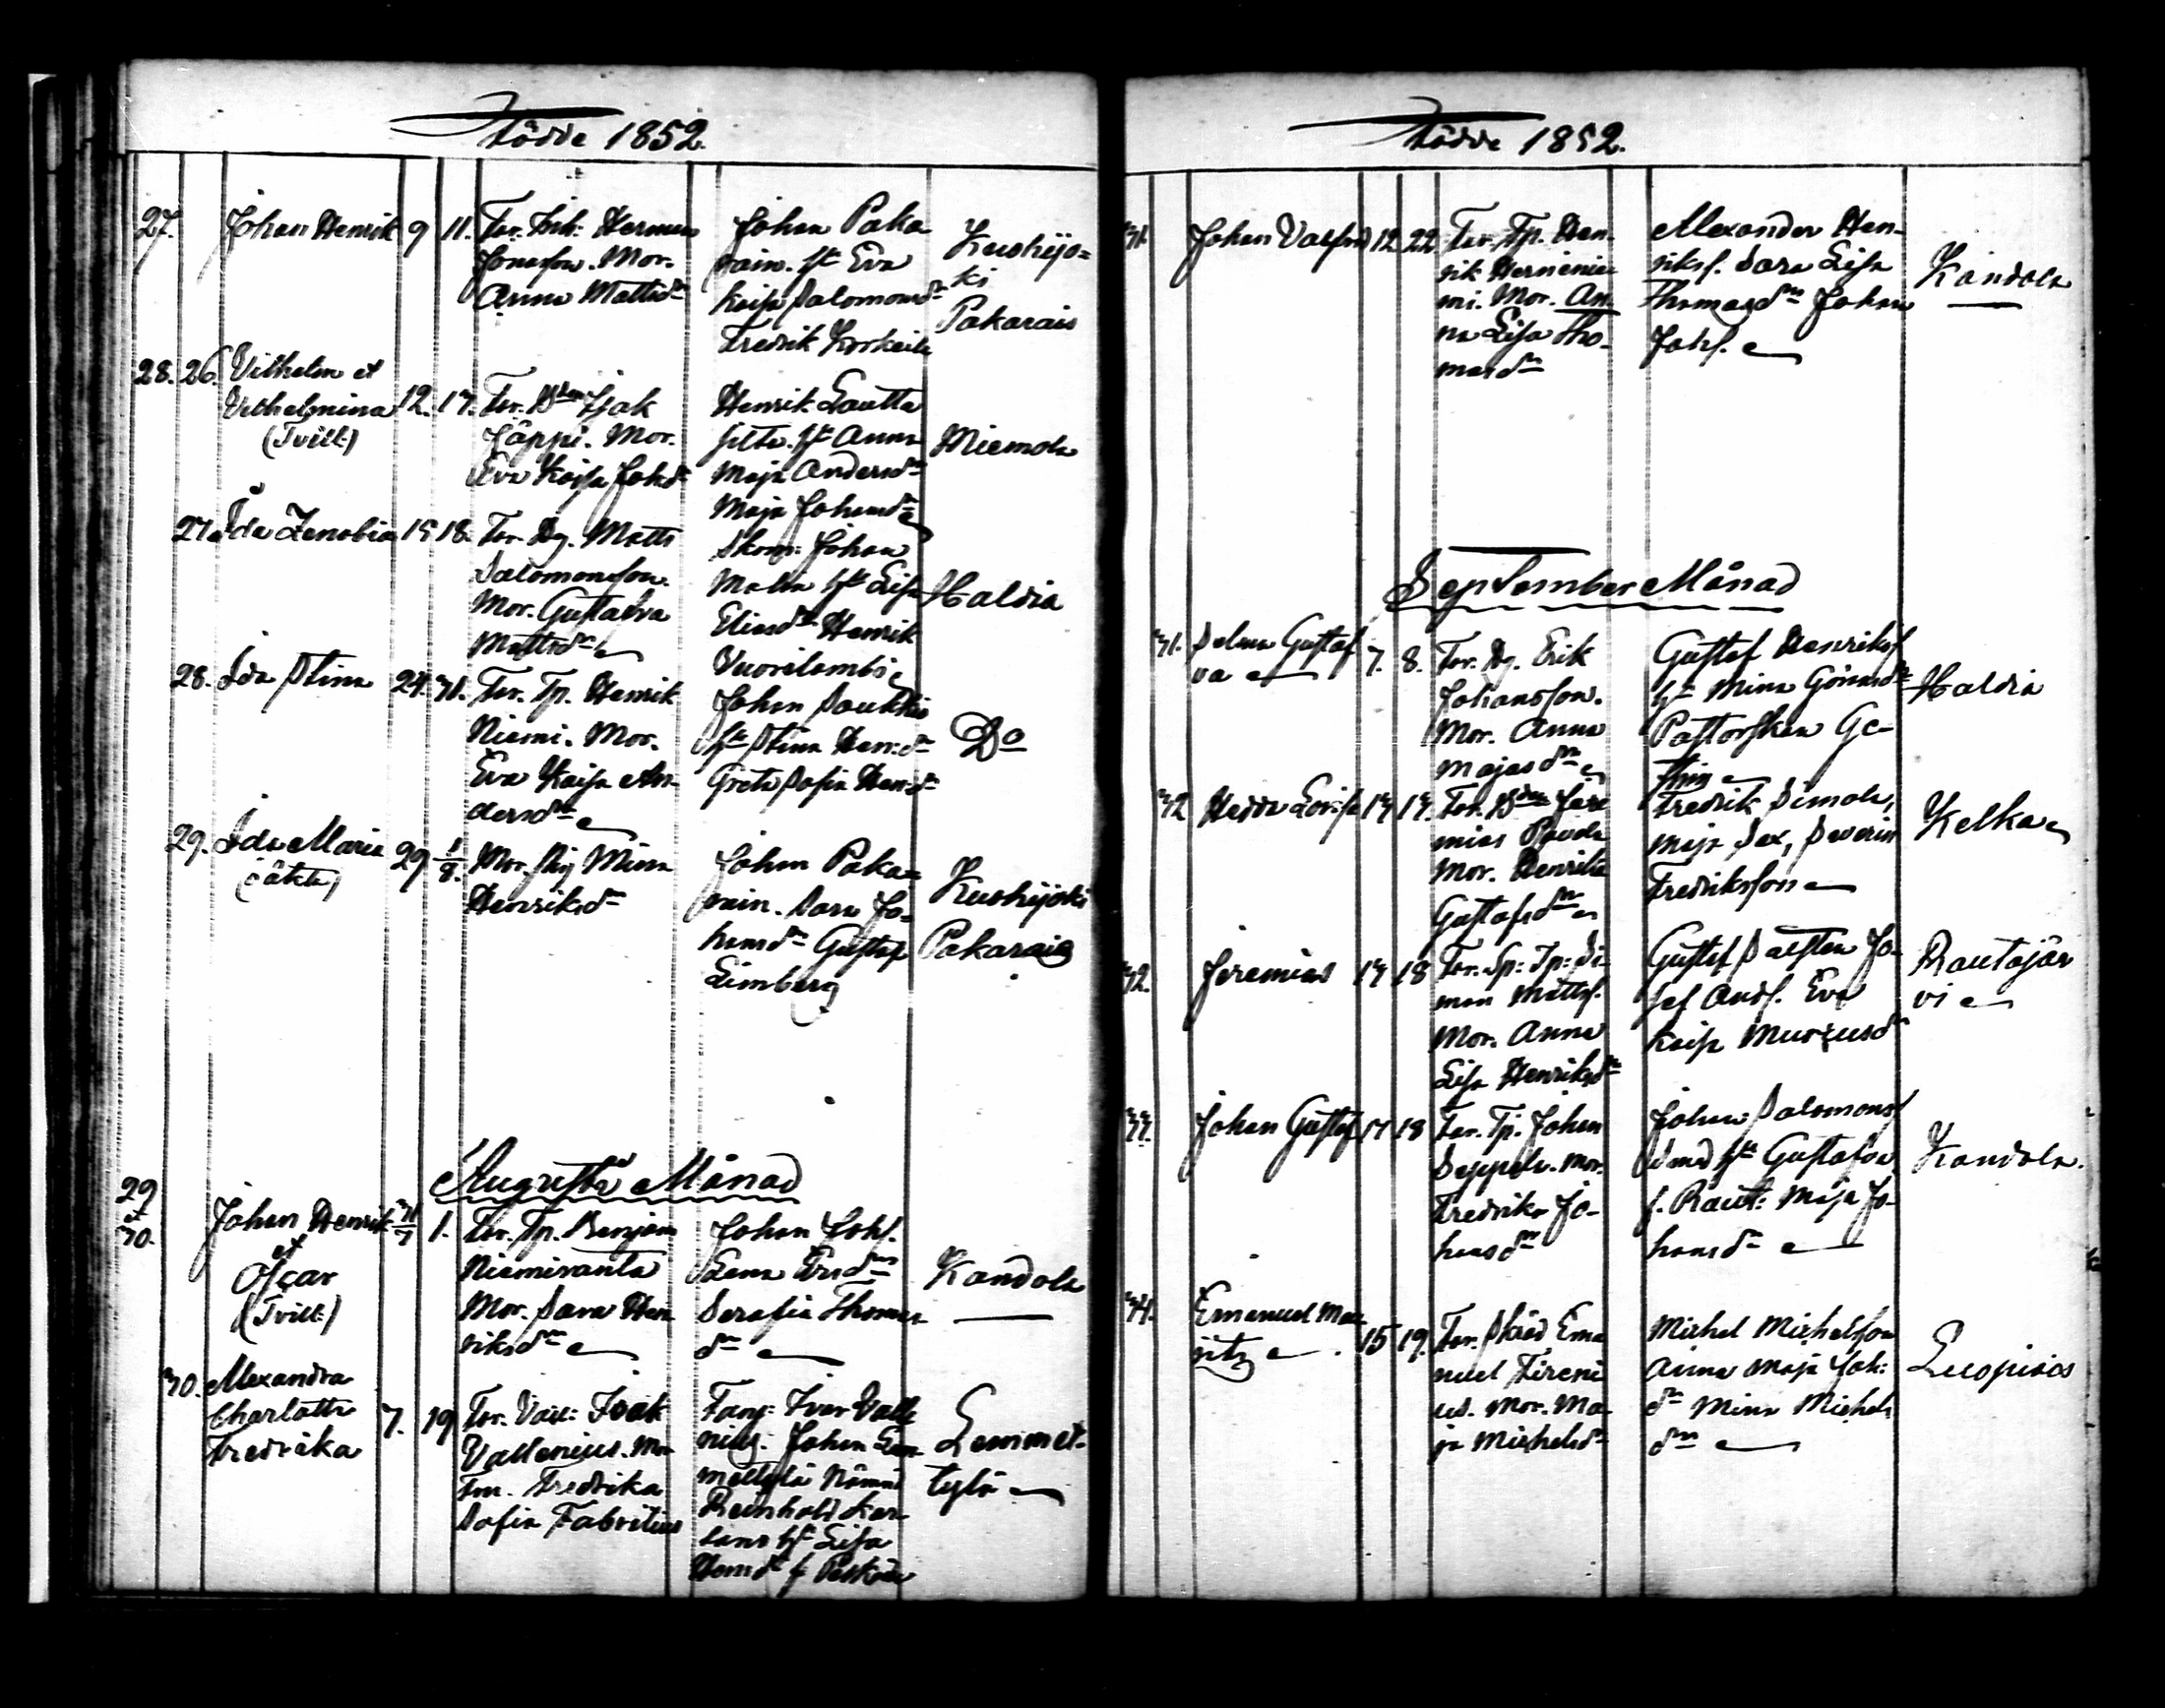 Födde 1852.
27. Johan Henrik 9 11. Far. Inh: Herman
Jonasson. Mor.
Anna Mattsdr
Johan Paka
rain. hu Eva
Kaisa Salomonsdr
Fredrik Korkeila
Kuohijo=
ki
Pakarais
28. 26. Vilhelm et
Vilhelmina 12. 17.
(Tvill:)
Far. Bden Isak
Jäppi. Mor.
Eva Kajsa Johsdr
Henrik Lautta
silta. hu Anna
Maja Andersdr
Maja Johansdr
Miemola
27. Ida Zenobia 15 18. Far. Dg. Matts
Salomonsson.
Mor. Gustafva
Mattsdr
Skom: Johan
Malm hu Lisa
Eliesdr Henrik
Vuorilambi
Haldia
28. Ida Stina 24. 31. Far. Tp. Henrik
Niemi. Mor.
Eva Kaisa An-
dersdr
Johan Saukko
hu Stina Hen:dr
Greta Sofia Hen:dr
Do
29. Ida Maria 29 1/8.
(oäkta)
Mor. Pig Mina
Henriksdr
Johan Paka=
rain. Sara Jo-
hansdr Gustaf
Limberg
Kuohijoki
Pakarais
Augusti Månad
29
et
30.
Johan Henrik 31/7 1.
et
Oscar
(Tvill:)
Far. Tp. Benjam
Niemiranta
Mor. Sara Hen
riksdr
Johan Johs.
Lena Ersdr
Serafia Thomas
dr
Kandola
30. Alexandra
Charlotta
Fredrika
7. 19
Far. Vall: Isak
Vallenius. Mor
Fru. Fredrika
Sofia Fabritius
Fanj: Iver Valle
nius. Johan Lem
mettylä Nämnd
Reinhold Kar
sans hu Lisa
Hemdr f.
Lemmet-
tylä
Födde 1852.
31. Johan Valfrid 12 22 Far. Tp. Hen-
rik Hernienie
mi. Mor. An
na Lisa Tho-
masdr
Alexander Hen-
riks. Sara Lisa
Thomasdr Johan
Johs.
Kandola
September Månad
31. Selma Gustaf
va
7. 8. Far. Dg. Erik
Johansson.
Mor. Anna
Majasdr
Gustaf Henriks
hu Mina Göransdr
Pastorskan Ge-
thin
Haldia
32 Hedda Lovisa 13 17. Far. Bden Jere
mias Pavola
Mor. Henrika
Gustafsdr
Fredrik Simola,
Maja Sax, Severin
Fredriksson
Kelka
32. Jeremias 13 18 Far. Sp: Tp: Si-
mon Mattss.
Mor. Anna
Lisa Henriksdr
Gustaf Salsten Jo-
sef Ands. Eva
Kaisa Murzusdr
Rautajär
vi
33. Johan Gustaf 11 18 Far. Tp. Johan
Seppelä. Mor.
Fredrika Jo-
hansdr
Johan Salomons
Smed hu Gustafva
f. Raut: Maja Jo-
hansdr
Kandola.
34. Emanuel Mau
ritz
15 19. Far. Skräd Ema
nuel Fireni
us. Mor. Ma-
ja Michelsdr
Michel Michelsson
Anna Maja Joh:
dr Mina Michels
dr
Luopiois